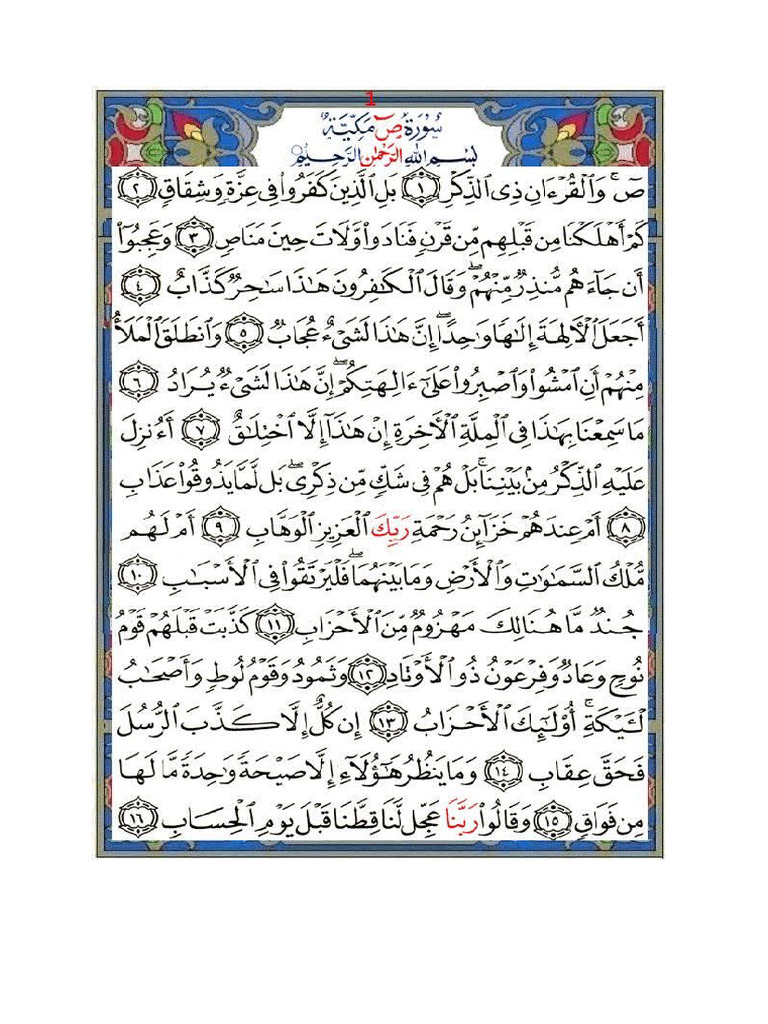 1
سُورَةُ صٓ مَكِّيَّةٌ
بِسْمِ اللهِ الرَّحْمٰنِ الرَّحِيمِ
صٓ ۚ وَٱلْقُرْءَانِ ذِى ٱلذِّكْرِ ١ بَلِ ٱلَّذِينَ كَفَرُوا۟ فِى عِزَّةٍ وَشِقَاقٍ ٢
كَمْ أَهْلَكْنَا مِن قَبْلِهِم مِّن قَرْنٍ فَنَادَوا۟ وَّلَاتَ حِينَ مَنَاصٍ ٣ وَعَجِبُوٓا۟
أَن جَآءَهُم مُّنذِرٌ مِّنْهُمْ ۖ وَقَالَ ٱلْكَـٰفِرُونَ هَـٰذَا سَـٰحِرٌ كَذَّابٌ ٤
أَجَعَلَ ٱلْأَلِهَةَ إِلَـٰهًا وَٰحِدًا ۖ إِنَّ هَـٰذَا لَشَىْءٌ عُجَابٌ ٥ وَٱنطَلَقَ ٱلْمَلَأُ
مِنْهُمْ أَنِ ٱمْشُوا۟ وَٱصْبِرُوا۟ عَلَىٰٓ ءَالِهَتِكُمْ ۖ إِنَّ هَـٰذَا لَشَىْءٌ يُرَادُ ٦
مَا سَمِعْنَا بِهَـٰذَا فِى ٱلْمِلَّةِ ٱلْأَخِرَةِ إِنْ هَـٰذَآ إِلَّا ٱخْتِلَـٰقٌ ٧ أَءُنزِلَ
عَلَيْهِ ٱلذِّكْرُ مِنۢ بَيْنِنَا ۚ بَلْ هُمْ فِى شَكٍّ مِّن ذِكْرِى ۖ بَل لَّمَّا يَذُوقُوا۟ عَذَابِ
٨ أَمْ عِندَهُمْ خَزَآئِنُ رَحْمَةِ رَبِّكَ ٱلْعَزِيزِ ٱلْوَهَّابِ ٩ أَمْ لَهُم
مُّلْكُ ٱلسَّمَـٰوَٰتِ وَٱلْأَرْضِ وَمَا بَيْنَهُمَا ۖ فَلْيَرْتَقُوا۟ فِى ٱلْأَسْبَـٰبِ ١٠
جُندٌ مَّا هُنَالِكَ مَهْزُومٌ مِّنَ ٱلْأَحْزَابِ ١١ كَذَّبَتْ قَبْلَهُمْ قَوْمُ
نُوحٍ وَعَادٌ وَفِرْعَوْنُ ذُو ٱلْأَوْتَادِ ١٢ وَثَمُودُ وَقَوْمُ لُوطٍ وَأَصْحَـٰبُ
لْـَٔيْكَةِ ۚ أُو۟لَـٰٓئِكَ ٱلْأَحْزَابُ ١٣ إِن كُلٌّ إِلَّا كَذَّبَ ٱلرُّسُلَ
فَحَقَّ عِقَابِ ١٤ وَمَا يَنظُرُ هَـٰٓؤُلَآءِ إِلَّا صَيْحَةً وَٰحِدَةً مَّا لَهَا
مِن فَوَاقٍ ١٥ وَقَالُوا۟ رَبَّنَا عَجِّل لَّنَا قِطَّنَا قَبْلَ يَوْمِ ٱلْحِسَابِ ١٦